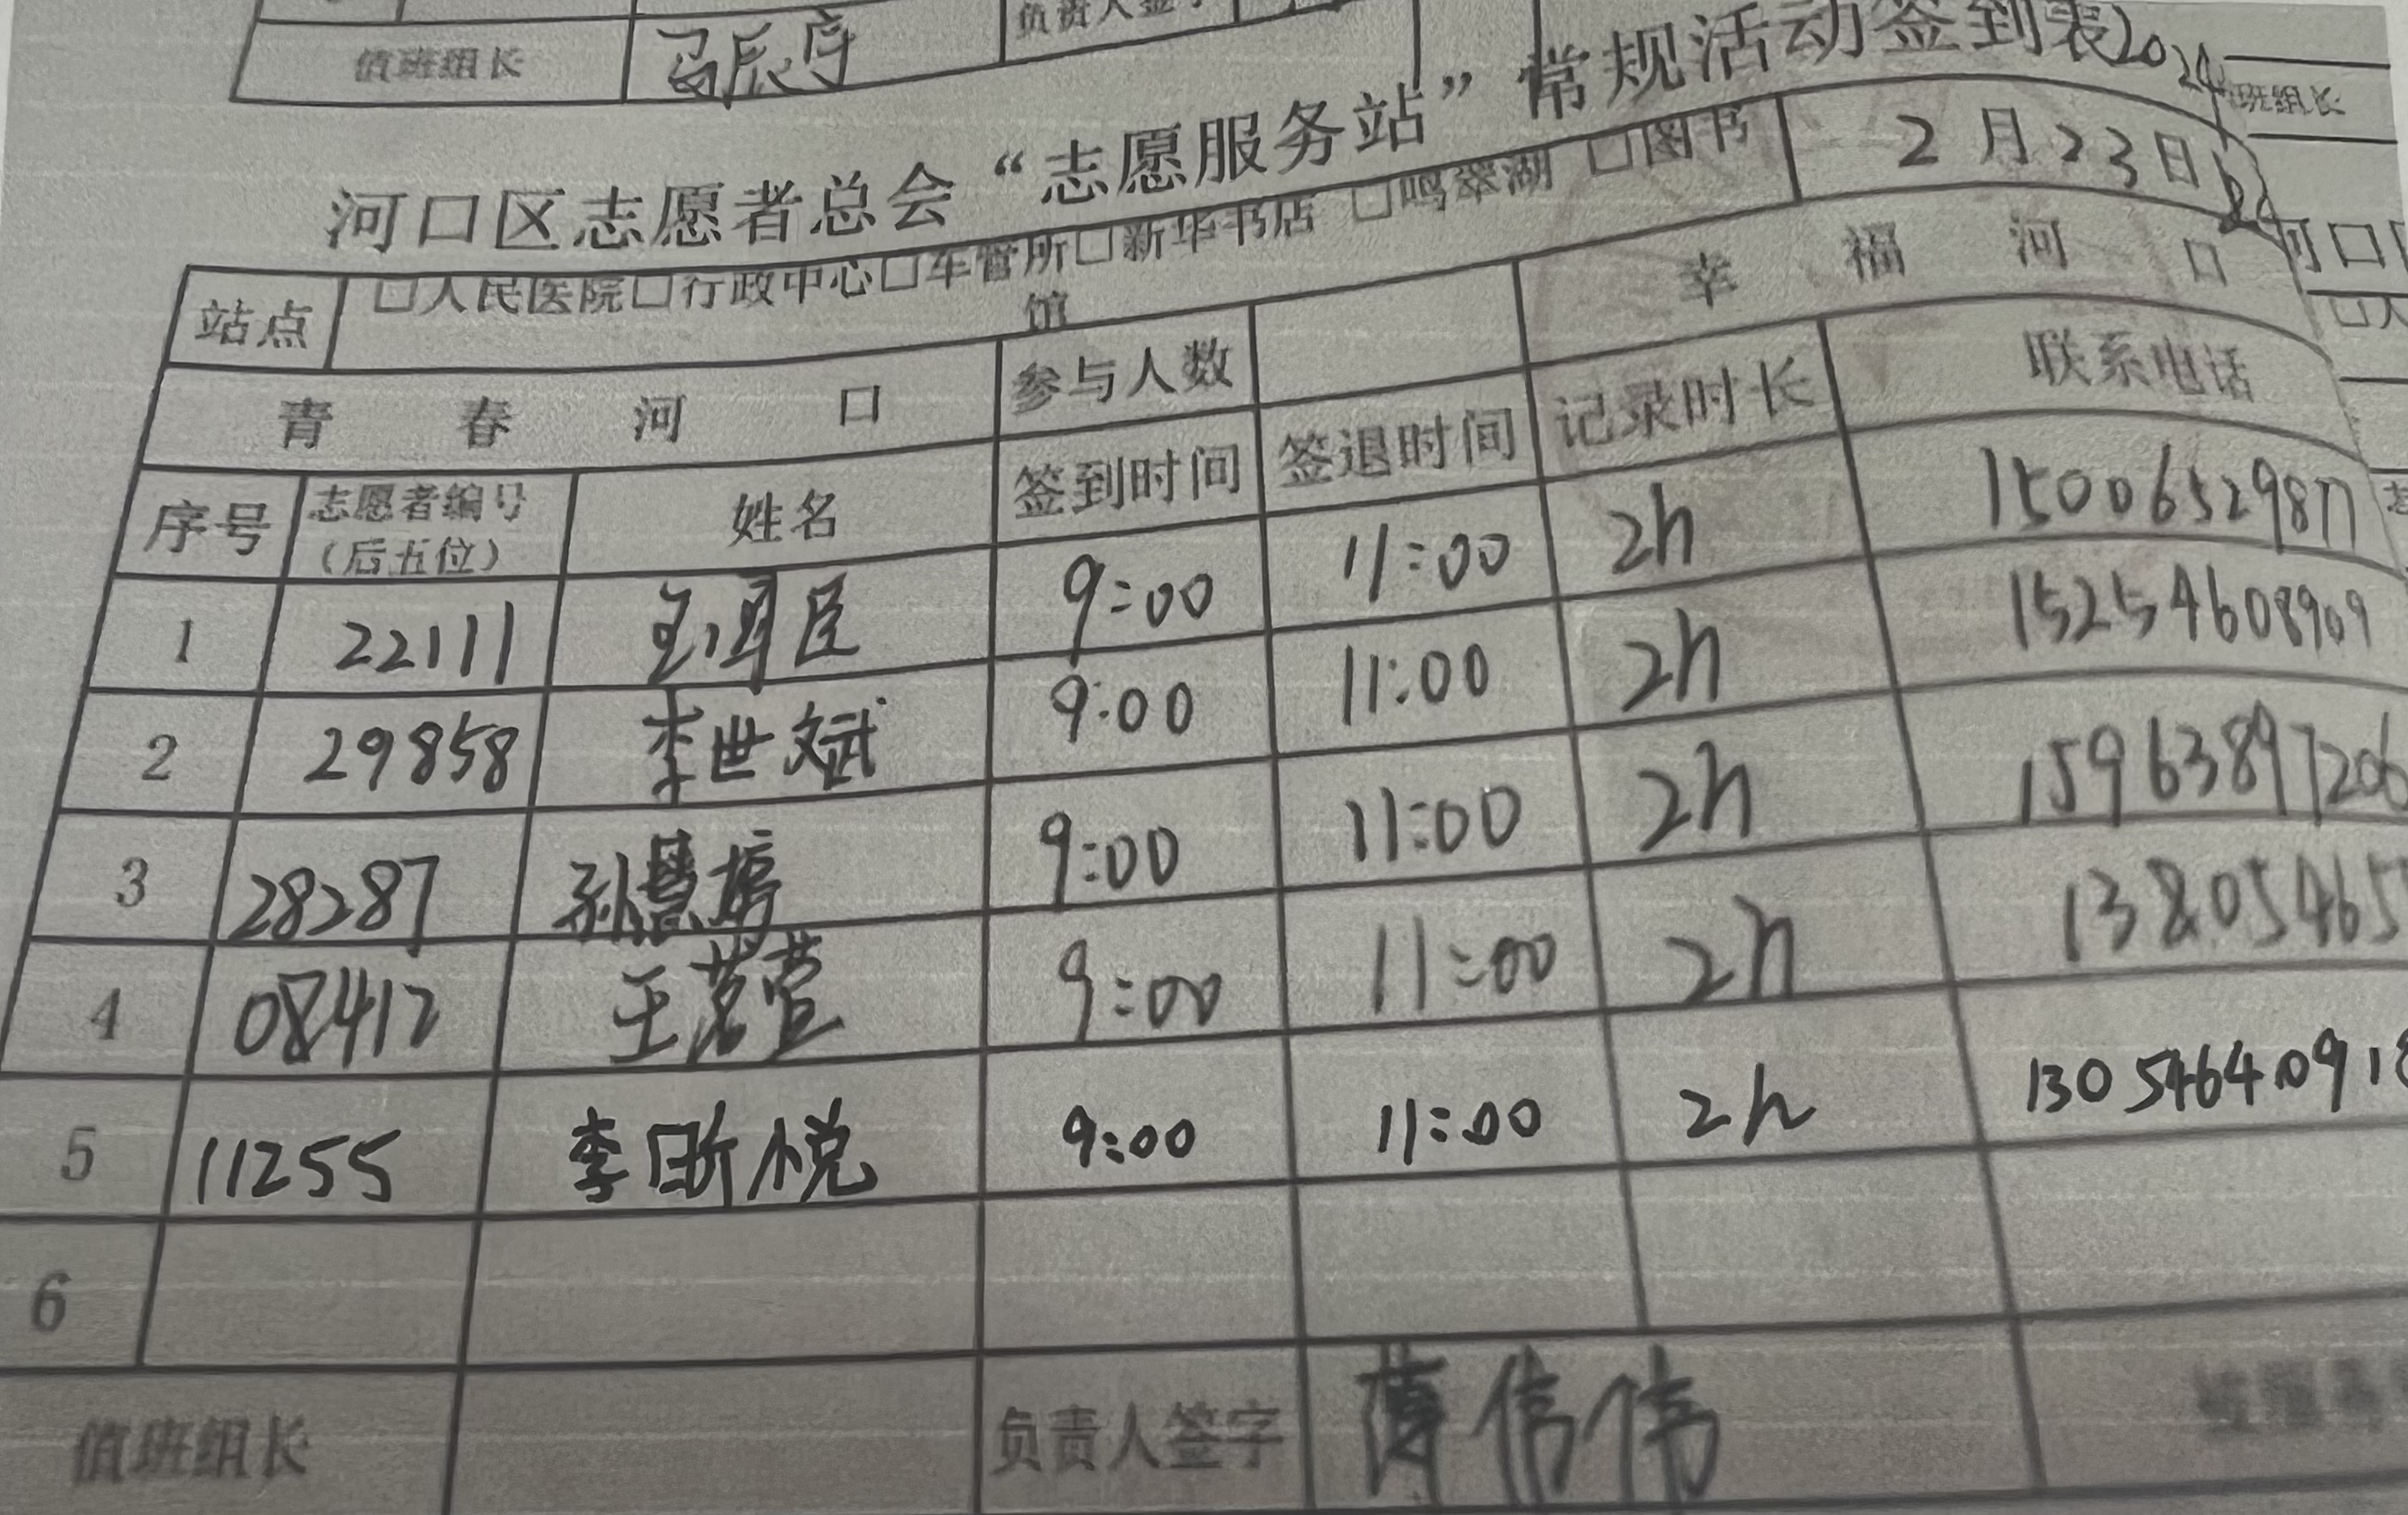 值班组长 负责人签字
河口区志愿者总会“志愿服务站”常规活动签到表 2024
班组长
站点 □人民医院□行政中心□车管所□新华书店 □鸣翠湖 □图书馆 2月23日
青春河口 参与人数 幸福河口
序号 志愿者编号（后五位） 姓名 签到时间 签退时间 记录时长 联系电话
1 22111 9:00 11:00 2h 15006529877
2 29858 李世斌 9:00 11:00 2h 15254608909
3 28287 孙慧婷 9:00 11:00 2h 15963897206
4 08412 王茗萱 9:00 11:00 2h 13805465
5 11255 李昕悦 9:00 11:00 2h 1305464091
6
值班组长 负责人签字 薄伟伟